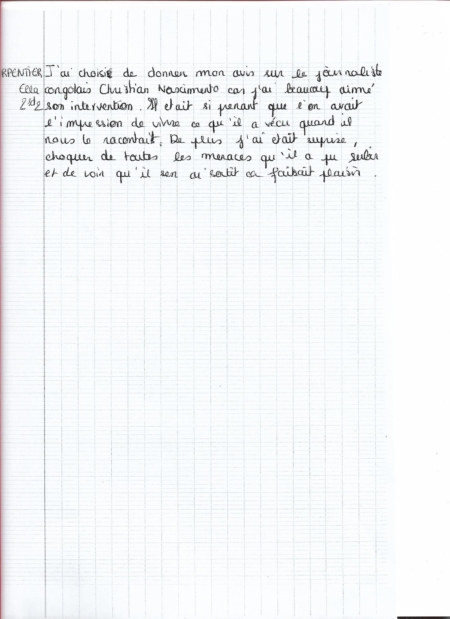 RPENTIER J'ai choisie de donner mon avis sur le journaliste
Ella congolais Christian Nascimento cas j'ai beaucoup aimé
2nde2 son intervention. Il etait si prenant que l'on avait
l'impression de vivre ce qu'il a vécu quand il
nous le racontait. De plus j'ai etait suprise,
choquer de toutes les menaces qu'il a pu subir
et de voir qu'il sen ai sortit ca faisait plaisir.